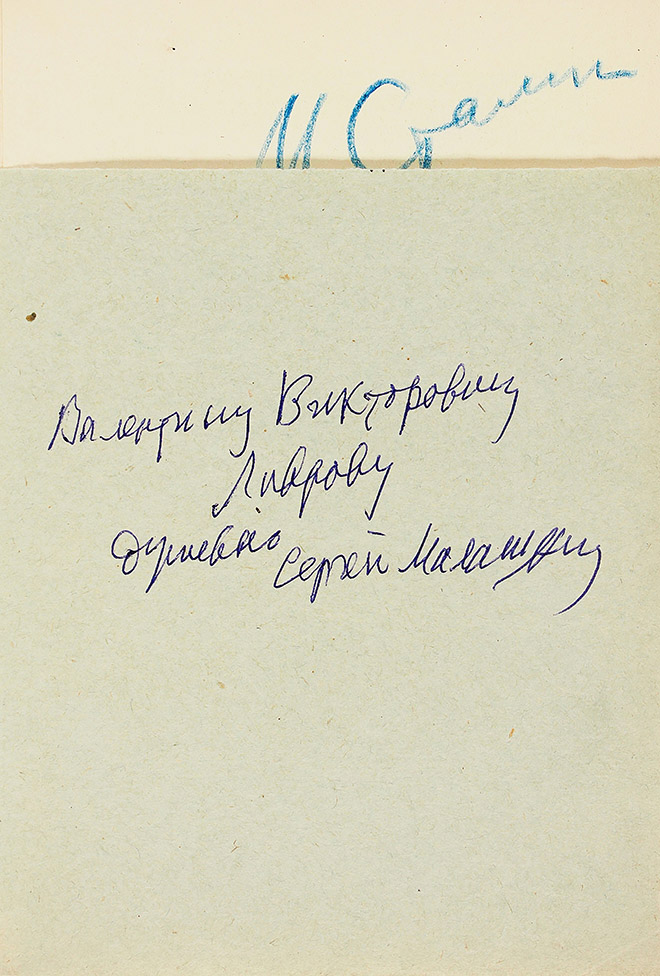 И Сталин
Валентину Викторовичу
Лаврову
душевно
Сергей Малашкин